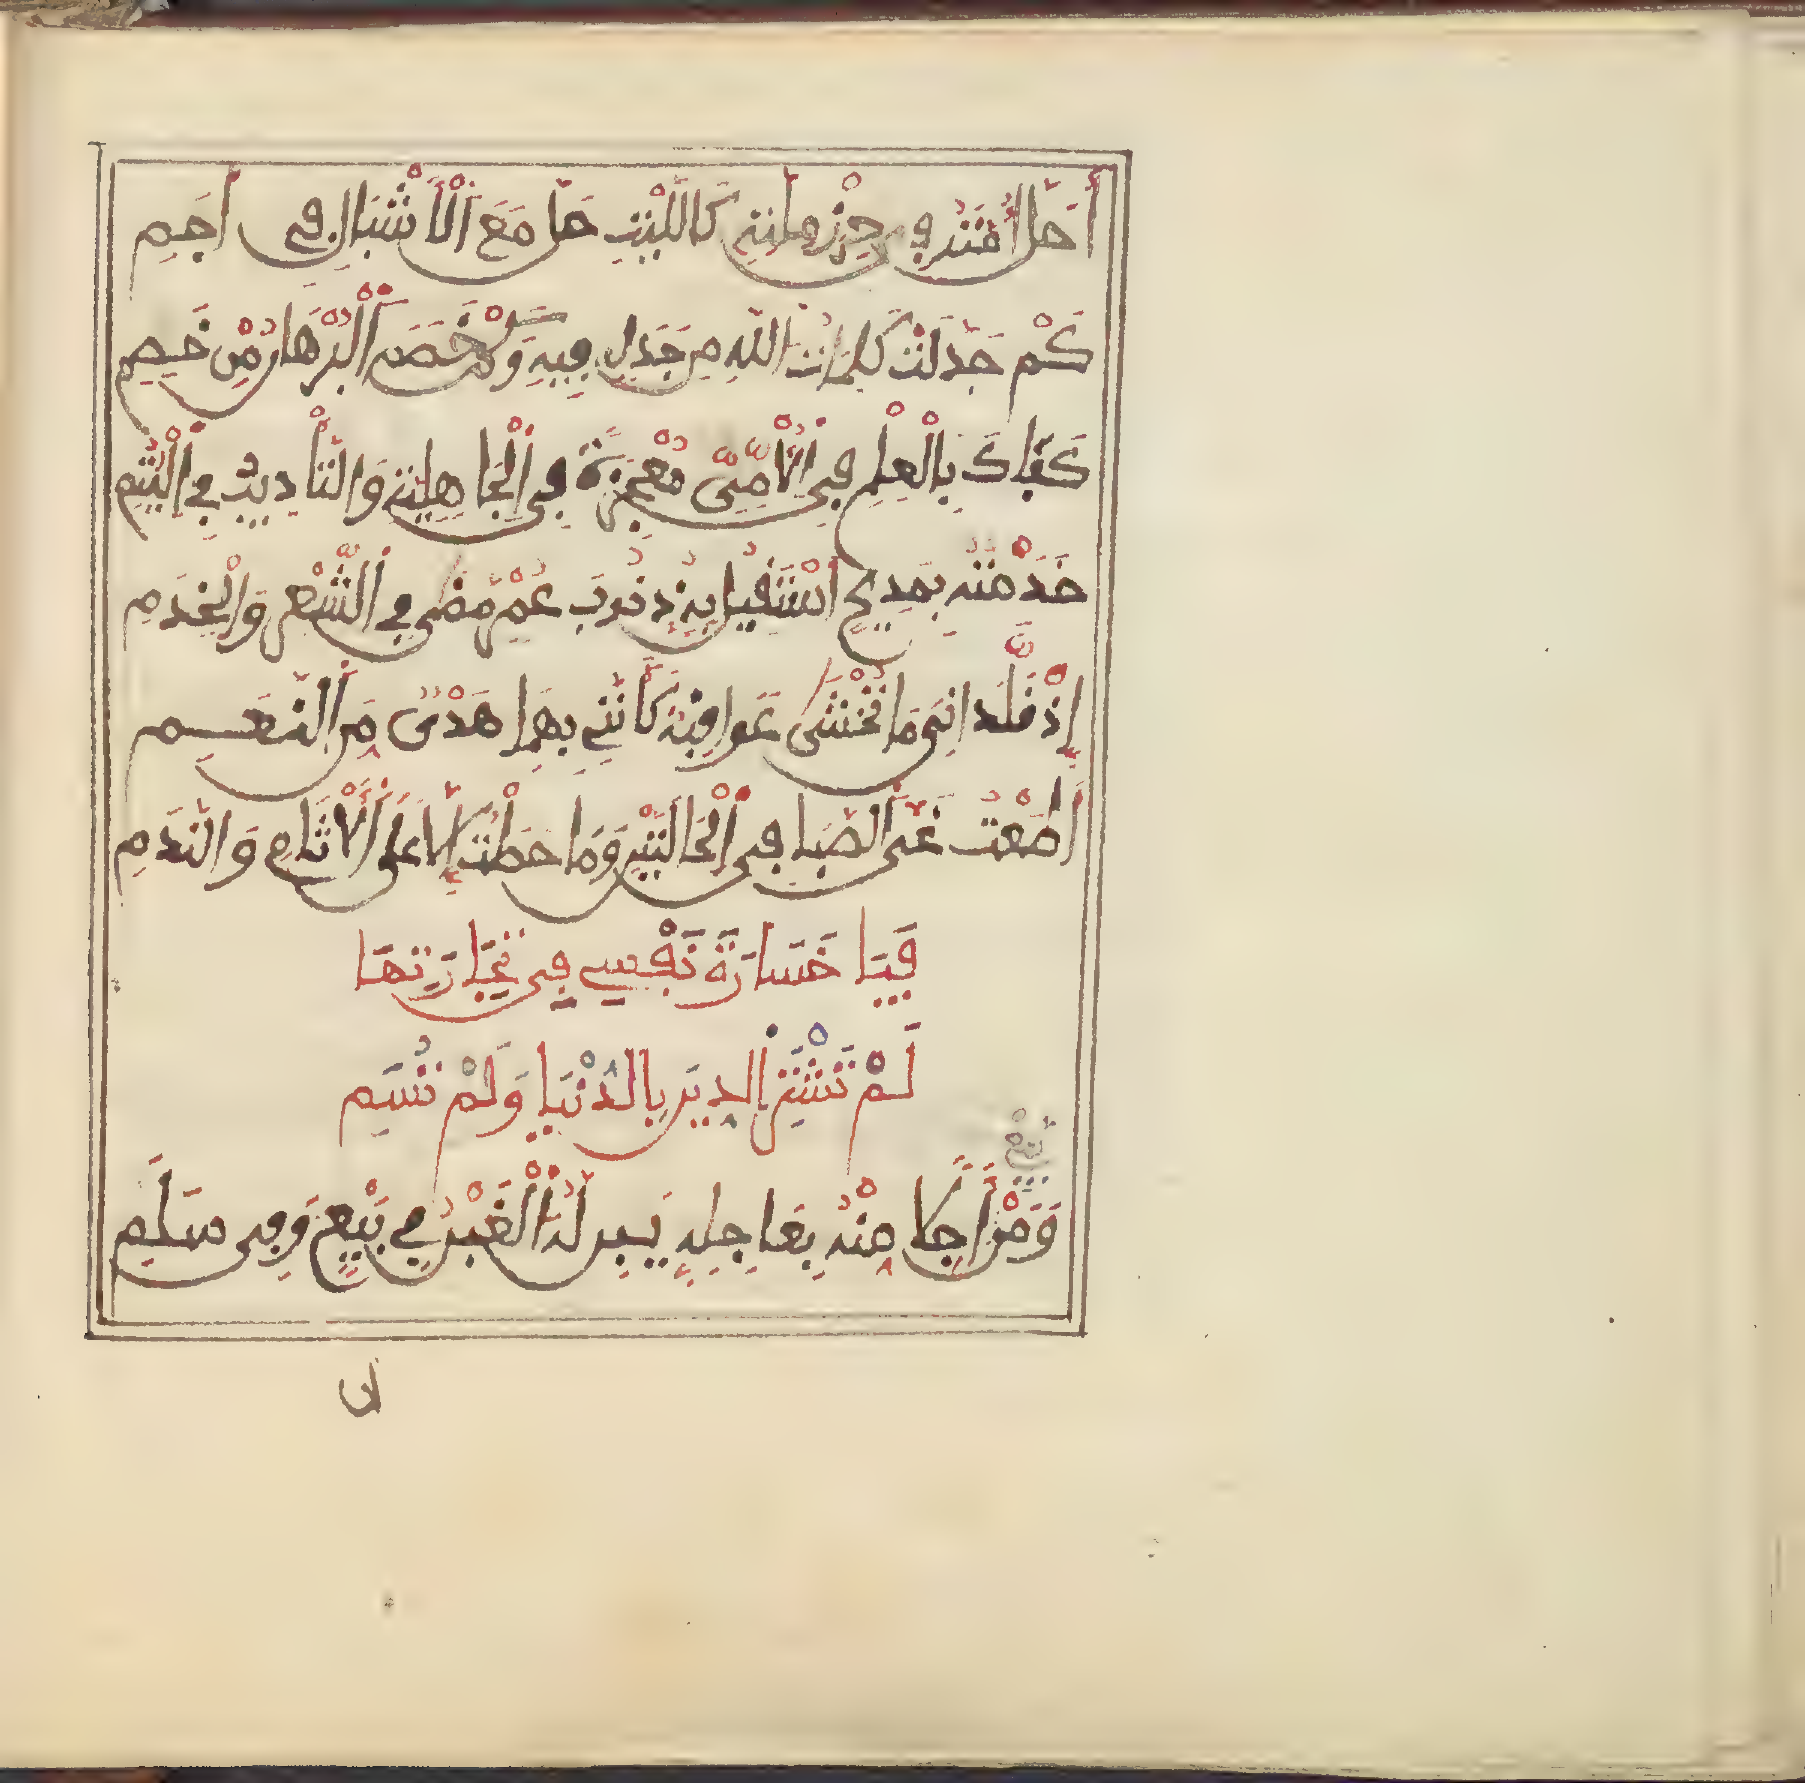 أَحَلَّ أُمَّتَهُ فِي حِرْزِ مِلَّتِهِ كَاللَّيْثِ حَلَّ مَعَ الْأَشْبَالِ فِي أَجَمِ
كَمْ جَدَّلَتْ كَلِمَاتُ اللَّهِ مِن جَدِلٍ فِيهِ وَكَمْ خَصَّمَ الْبُرْهَانُ مِنْ خَصِمِ
كَفَاكَ بِالْعِلْمِ فِي الْأُمِّيِّ مُعْجِزَةً فِي الْجَاهِلِيَّةِ وَالتَّأْدِيبِ فِي الْيُتُمِ
خَدَمْتُهُ بِمَدِيحٍ أَسْتَقِيلُ بِهِ ذُنُوبَ عُمْرٍ مَضَى فِي الشِّعْرِ وَالْخِدَمِ
إِذْ قَلَّدَانِيَ مَا تُخْشَى عَوَاقِبُهُ كَأَنَّنِي بِهِمَا هَدْىٌ مِّنَ النَّعَمِ
أَطَعْتُ غَيَّ الصِّبَا فِي الْحَالَتَيْنِ وَمَا حَصَلْتُ إِلَّا عَلَى الْأَثَامِ وَالنَّدَمِ
فَيَا خَسَارَةَ نَفْسِي فِي تِجَارَتِهَا
لَمْ تَشْتَرِ الدِّينَ بِالدُّنْيَا وَلَمْ تَسُمِ
يَّبِعْ
وَمَنْ آجِلًا مِنْهُ بِعَاجِلِهِ يَبِن لَهُ الْغَبْنُ فِي بَيْعٍ وَفِي سَلَمِ
ان